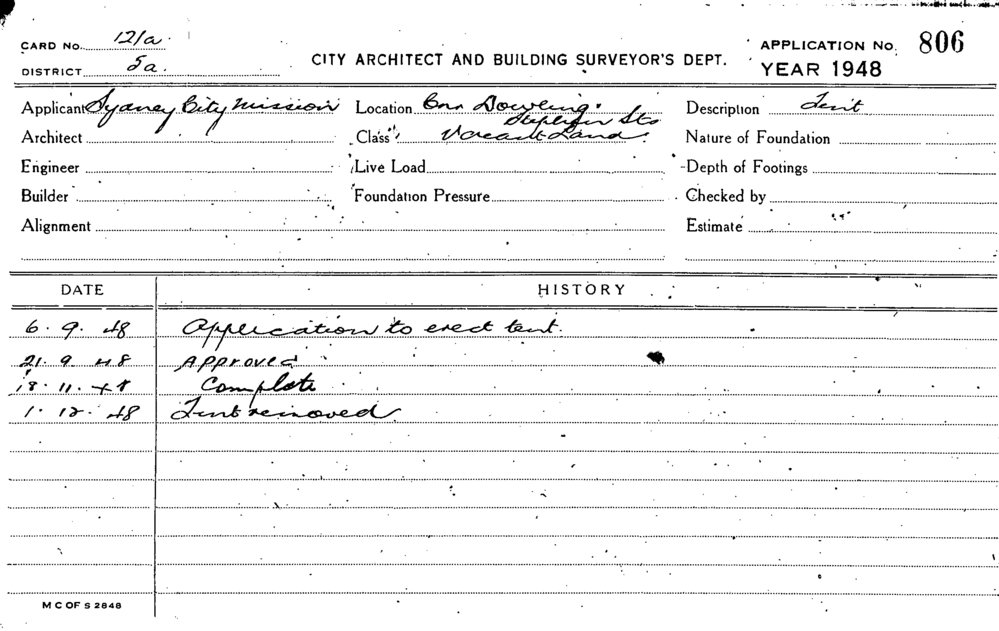 CARD No. 121a
DISTRICT 5a.
CITY ARCHITECT AND BUILDING SURVEYOR'S DEPT.
APPLICATION No. 806
YEAR 1948
Applicant Sydney City Mission
Location Cnr Dowling.
Stephen Sts
Description Tent
Architect
Class Vacant Land.
Nature of Foundation
Engineer
Live Load
Depth of Footings
Builder
Foundation Pressure
Checked by
Alignment
Estimate
DATE HISTORY
6. 9. 48 Application to erect tent.
21. 9 48 Approved
18. 11. 48 Complete
1. 12. 48 Tent removed
M C OF S 2848